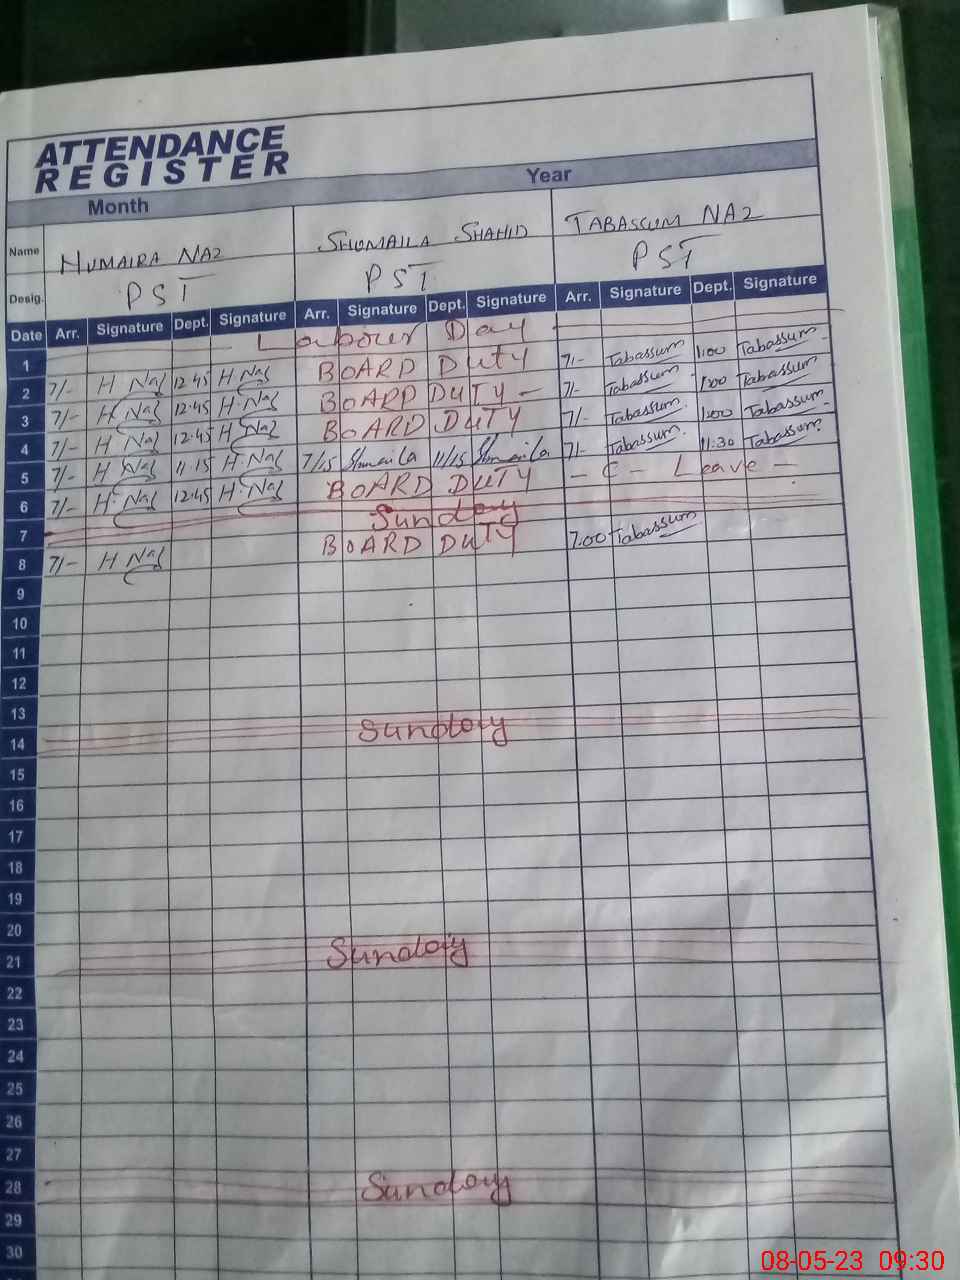 ATTENDANCE
REGISTER
Month Year
Name HUMAIRA NAZ SHUMAILA SHAHID TABASSUM NAZ
Desig. PST PST PST
Date Arr. Signature Dept. Signature Arr. Signature Dept. Signature Arr. Signature Dept. Signature
1 Labour Day
2 7/- H Naz 12:45 H Naz BOARD DUTY 7/- Tabassum 1:00 Tabassum
3 7/- H Naz 12:45 H Naz BOARD DUTY 7/- Tabassum 1:00 Tabassum
4 7/- H Naz 12:45 H Naz BOARD DUTY 7/- Tabassum 1:00 Tabassum
5 7/- H Naz 11:15 H Naz 7/15 Shumaila 11/15 Shumaila 7/- Tabassum 11:30 Tabassum
6 7/- H Naz 12:45 H Naz BOARD DUTY - C - Leave -
7 Sunday
8 7/- H Naz BOARD DUTY 7.00 Tabassum
9
10
11
12
13
14 Sunday
15
16
17
18
19
20
21 Sunday
22
23
24
25
26
27
28 Sunday
29
30
08-05-23 09:30